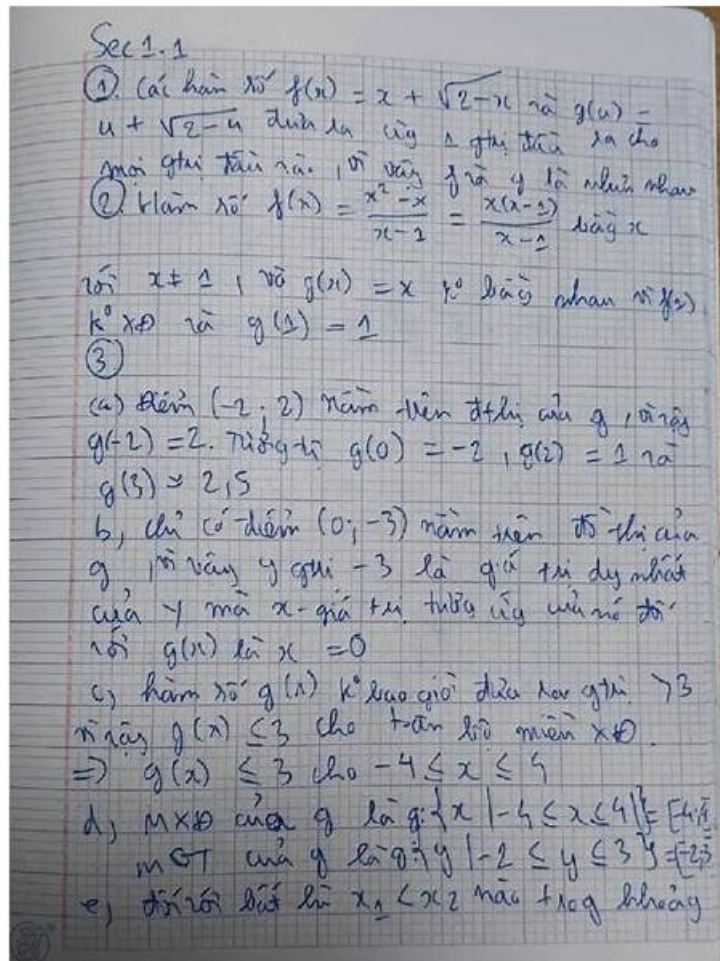 Sec 1.1
① Các hàm số f(x) = x + √2-x và g(u) =
u + √2-u đưa ra cùg 1 gtrị đầu ra cho
mọi gtrị đầu vào, vì vậy f và g là như nhau
② Hàm số f(x) = x² - x / x - 1 = x(x-1) / x - 1 bằng x
với x ≠ 1, và g(x) = x k° bằng nhau vì f(1)
k° XĐ và g(1) = 1
③
(a) Điểm (-2; 2) nằm trên đthị của g, vì vậy
g(-2) = 2. Tương tự g(0) = -2, g(2) = 1 và
g(3) ≈ 2,5
b, chỉ có điểm (0; -3) nằm trên đồ thị của
g, vì vậy y gtrị -3 là giá trị dy nhất
của y mà x-giá trị tương ứg của nó đối
với g(x) là x = 0
c, hàm số g(x) k° bao giờ đưa ra gtrị >3
vì vậy g(x) ≤ 3 cho toàn bộ miền XĐ.
=> g(x) ≤ 3 cho -4 ≤ x ≤ 4
d, MXĐ của g là g: {x | -4 ≤ x ≤ 4} = [-4;4]
MGT của g là g: {y | -2 ≤ y ≤ 3} = [-2;3]
e, đối với bất kì x₁ < x₂ nào trog khoảng